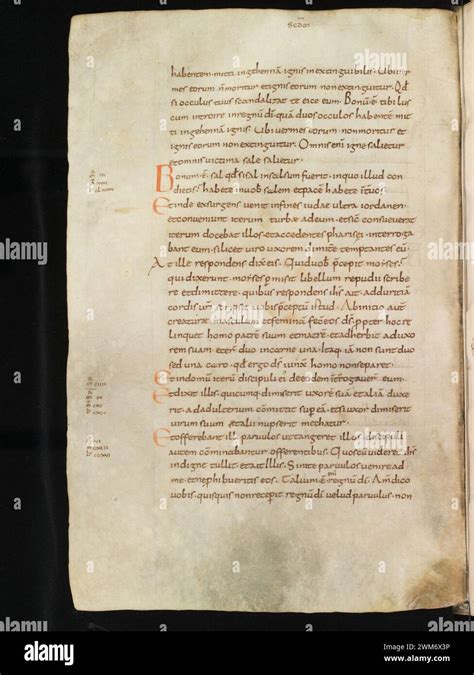 habentem mitti ingehennā ignis inextinguibilis. Ubi ver
mes eorum ñ moritur et ignis eorum non extinguitur. Qd
si occulus tuus scandalizat te eice eum. Bonū ē tibi lus
cum introire in regnū dī quā duos occulos habente mit
ti in gehennā ignis. Ubi vermes eorum non moritur et
ignis eorum non extinguitur. Omnis enī igne salietur
et omnis victima sale salietur.
Bonum ē sal qd si sal insulsum fuerit. in quo illud con
dietis. habete in vob salem et pacē habete
Et inde exsurgens venit in fines iudae ultra iordanen.
et conveniunt iterum turbae ad eum. et sicut consueverat
iterum docebat illos. et accedentes pharisei interroga
bant eum. si licet viro uxorem dimittere temptantes eū.
At ille respondens dixit eis. Quid vob p̄cepit moyses.
qui dixerunt. moyses p̄misit libellum repudii scribe
re et dimittere. quibus respondens ihs ait. ad duritiā
cordis vrī vobis p̄ceptū istud. Ab initio aut
creaturae masculum et feminā fec eos ds. p̄pter hoc re
linquet homo patrē suum et matrē. et adherbit ad uxo
rem suam. et erī duo in carne una. Itaq iā non sunt duo
sed una caro. qd ergo ds iunx homo non separet.
Et in domū iterū discipuli ei de eodem interrogaver eum.
Et dixit illis. quicumq dimiserit uxorē suā et aliā duxe
rit. adulterium committit sup eā. et si uxor dimiserit
virum suum et alii nupserit mechatur.
Et offerebant illi parvulos ut tangeret illos. discipuli
autem comminabantur offerentibus. Quos cū videret ihs
indigne tulit et ait illis. Sinite parvulos venire ad
me et ne phibueritis eos. Talium ē regnū dī. Am dico
vobis. quisquis non recepit regnū dī velud parvulus. non
alamy
Image ID: 2WM6X3P
www.alamy.com